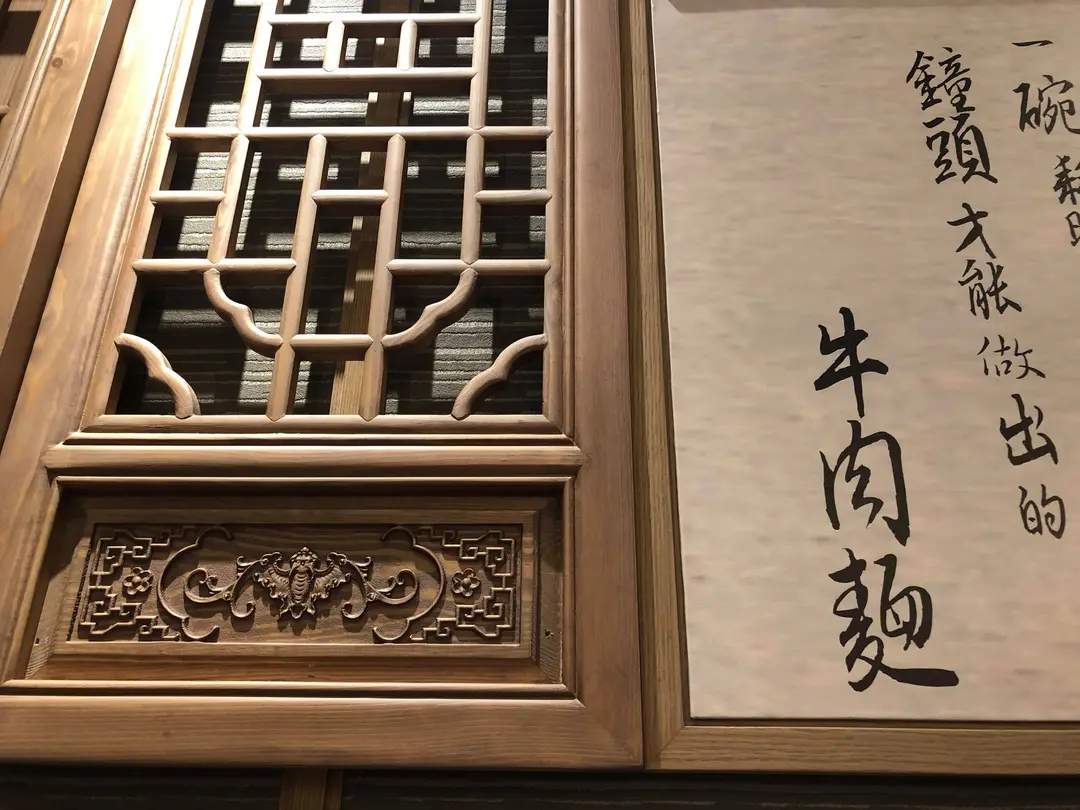 一碗
鐘頭才能做出的
牛肉麵